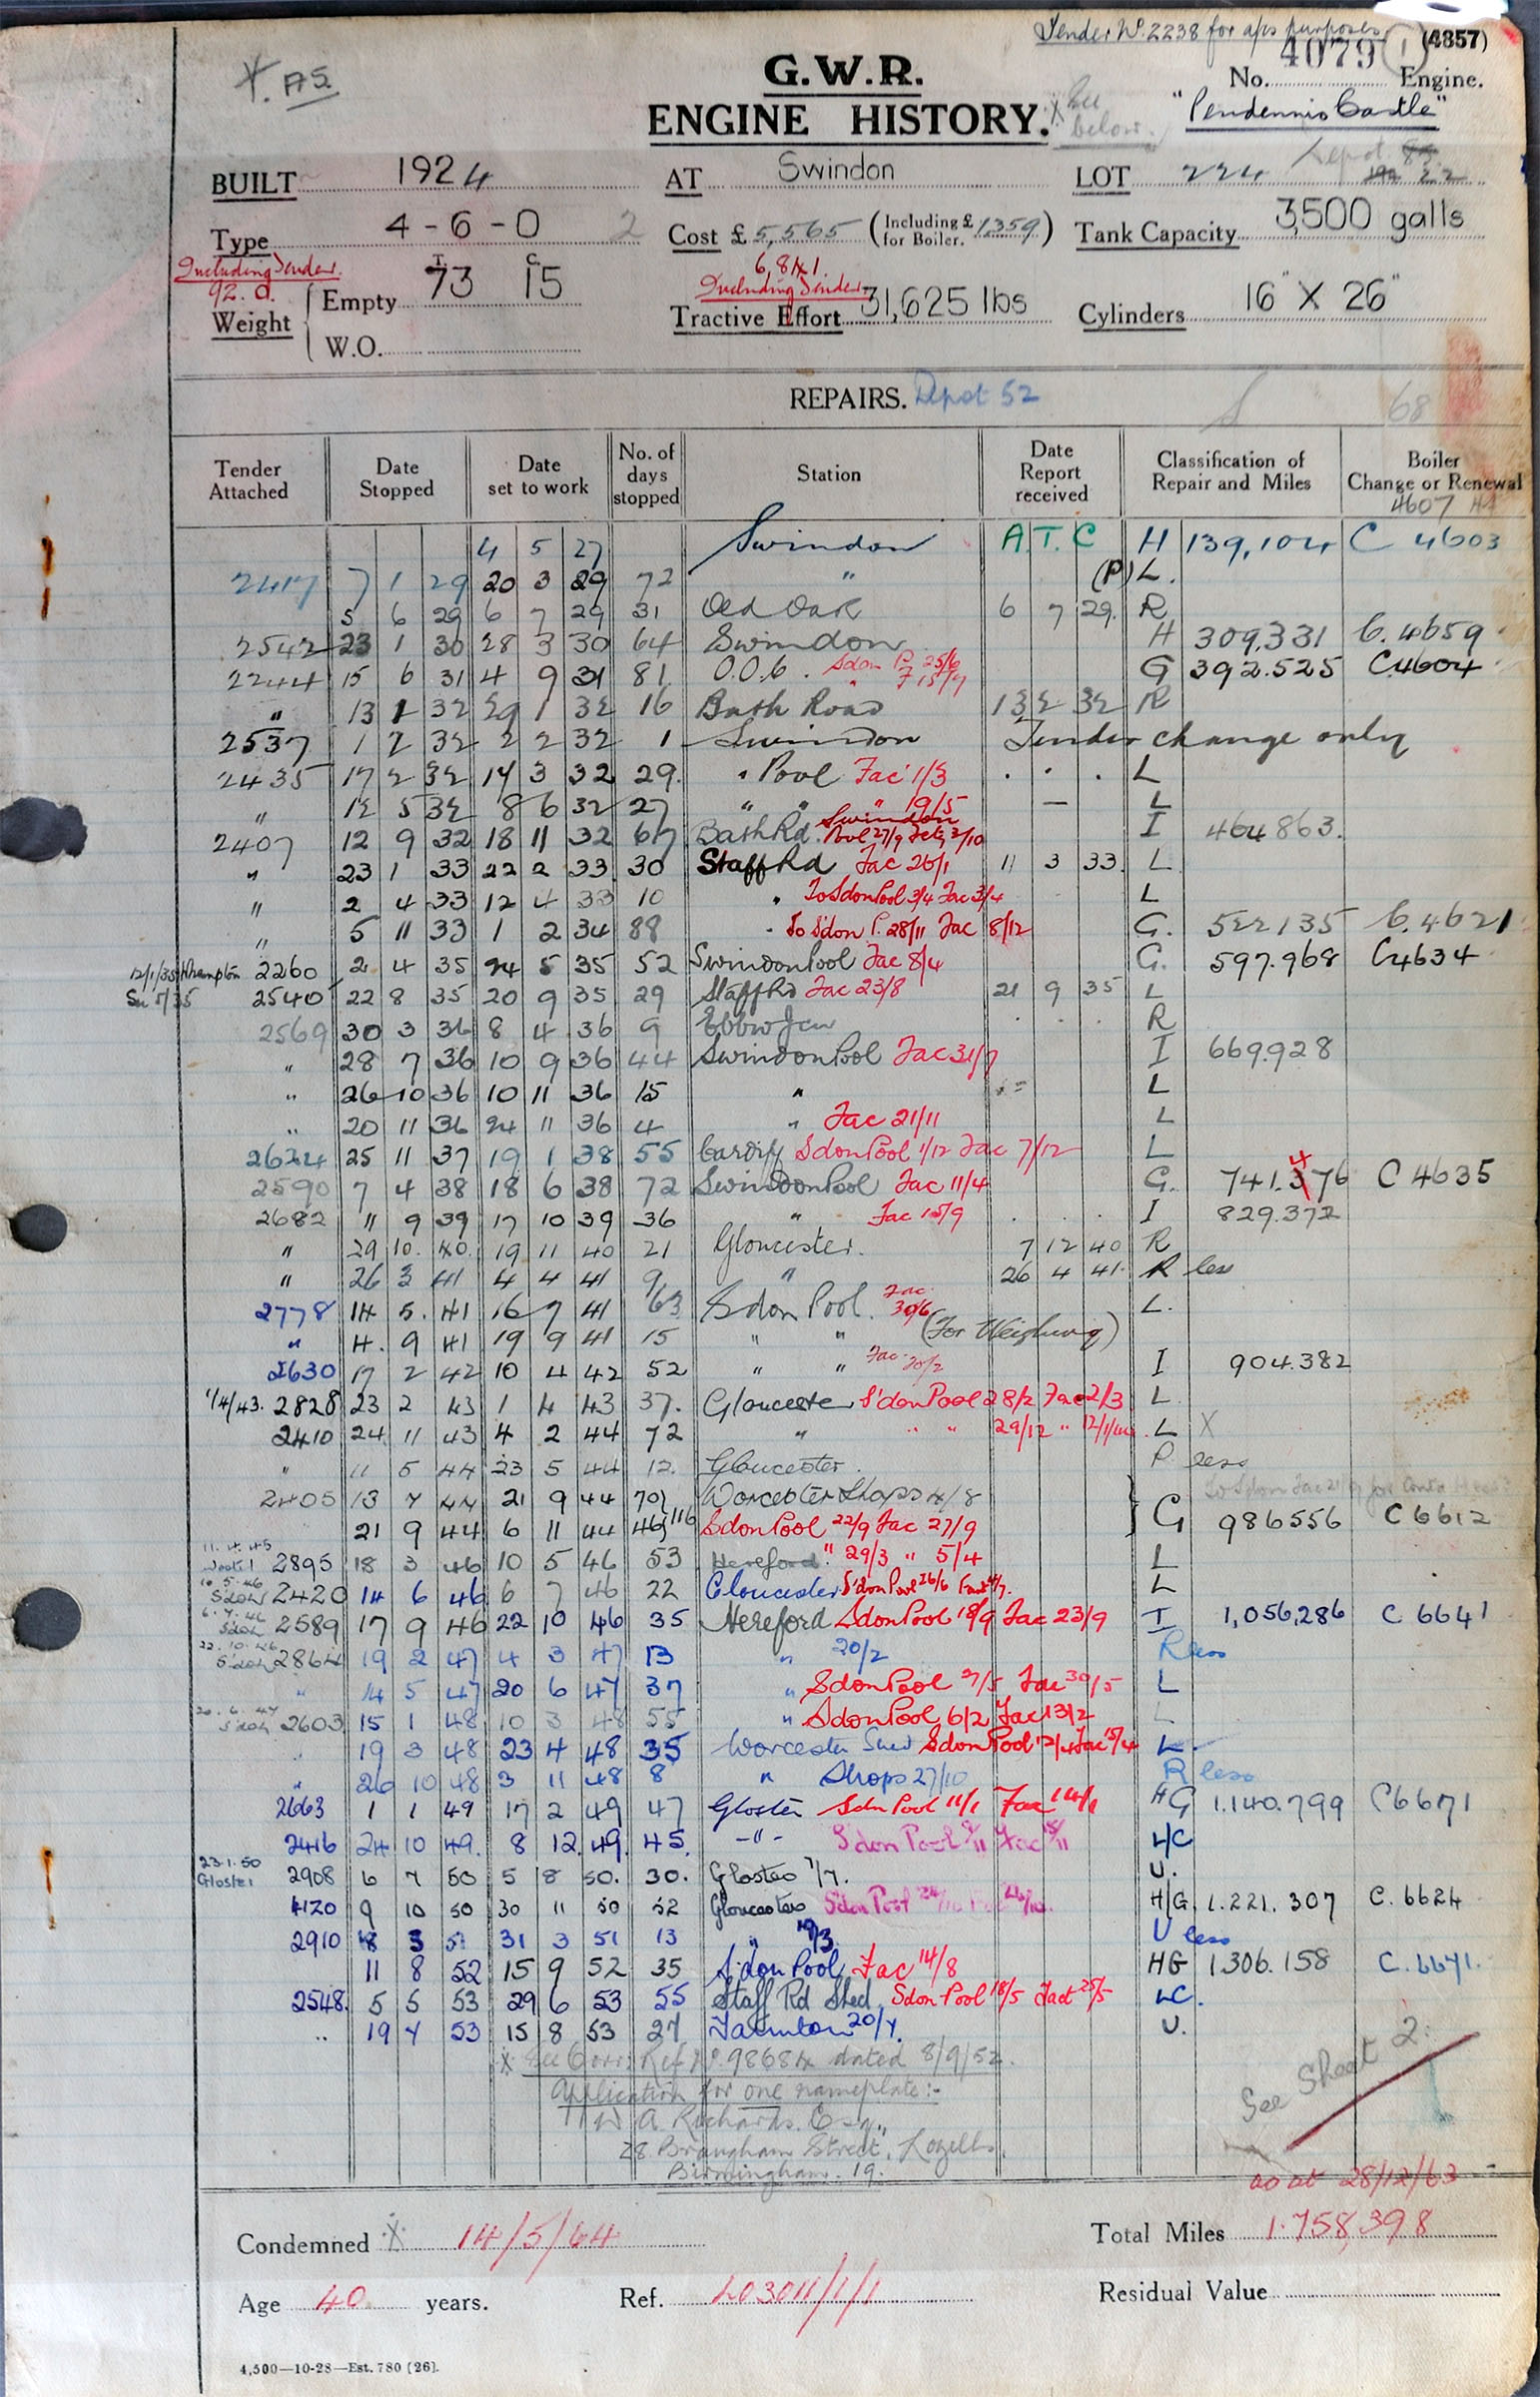 Tender No. 2238 for a/cs purposes
4079 1 (4857)
G.W.R. No. Engine.
X. AS
ENGINE HISTORY. X See below. "Pendennis Castle"
BUILT 1924 AT Swindon LOT 224 Depot
Type 4-6-0 2 Cost £ 5,565 (Including £ 1359 for Boiler.) Tank Capacity 3,500 galls
Including Tender. 92. 0. 6,841. Including Tender
T. C.
Weight Empty 73 15 Tractive Effort 31,625 lbs Cylinders 16" X 26"
W.O.
REPAIRS. Depot 52 68
Tender Attached Date Stopped Date set to work No. of days stopped Station Date Report received Classification of Repair and Miles Boiler Change or Renewal
4607
4 5 27 Swindon A.T.C H 139,104 C 4603
2417 7 1 29 20 3 29 72 " (P) L.
5 6 29 6 7 29 31 Old Oak 6 7 29. R
2542 23 1 30 28 3 30 64 Swindon H 309,331 C. 4659
2244 15 6 31 4 9 31 81 O.O.C. Sdon P. 25/6 " F 15/7 G 392.525 C4604
" 13 1 32 29 1 32 16 Bath Road 13 2 32 R
2537 1 2 32 2 2 32 1 Swindon Tender change only
2435 17 2 32 17 3 32 29. " Pool Fac 1/3 . . . L
" 12 5 32 8 6 32 27 " " " 19/5 — L
2407 12 9 32 18 11 32 67 Bath Rd. Swindon Pool 27/9 Facty 3/10 I 464863.
" 23 1 33 22 2 33 30 Staff Rd Fac 26/1 11 3 33. L
" 2 4 33 12 4 33 10 " To Sdon Pool 3/4 Fac 3/4 L
" 5 11 33 1 2 34 88 " To S'don P. 28/11 Fac 8/12 G. 522135 C. 4621
12/1/35 Whampton 2260 2 4 35 24 5 35 52 Swindon Pool Fac 8/4 G. 597.968 C4634
2540 22 8 35 20 9 35 29 Staff Rd Fac 23/8 21 9 35 L
2569 30 3 36 8 4 36 9 Ebbw Jcn . . . R
" 28 7 36 10 9 36 44 Swindon Pool Fac 31/7 I 669.928
" 26 10 36 10 11 36 15 " L
" 20 11 36 24 11 36 4 " Fac 21/11 L
2624 25 11 37 19 1 38 55 Cardiff Sdon Pool 1/12 Fac 7/12 L
2590 7 4 38 18 6 38 72 Swindon Pool Fac 11/4 G. 741.376 4 C 4635
2682 11 9 39 17 10 39 36 " Fac 15/9 . . . I 829.372
" 29 10. 40. 19 11 40 21 Gloucester. 7 12 40 R
" 26 3 41 4 4 41 9 " 26 4 41. R less
2778 14 5. 41 16 7 41 63 Sdon Pool. Fac 30/6 L.
" 4. 9 41 19 9 41 15 " " (For Weighing)
2630 17 2 42 10 4 42 52 " " Fac. 20/2 I 904.382
1/4/43. 2828 23 2 43 1 4 43 37. Gloucester S'don Pool 28/2 Fac 2/3 L
2410 24 11 43 4 2 44 72 " " " 29/12 " 12/1/44 L X
" 11 5 44 23 5 44 12. Gloucester. R less
2405 13 7 44 21 9 44 70 Worcester Shops 4/8
21 9 44 6 11 44 46 116 Sdon Pool 22/9 Fac 27/9 G 986556 C 6612
2895 18 3 46 10 5 46 53 Hereford " 29/3 " 5/4 L
10.5.46 Sdon 2420 14 6 46 6 7 46 22 Gloucester S'don Pool 26/6 L
6.7.46 Sdon 2589 17 9 46 22 10 46 35 Hereford Sdon Pool 18/9 Fac 23/9 I 1,056,286 C 6641
22.10.46 Sdon 2864 19 2 47 4 3 47 13 " 20/2 R less
" 14 5 47 20 6 47 37 " Sdon Pool Fac 30/5 L
20.6.47 Sdon 2603 15 1 48 10 3 48 55 " Sdon Pool 6/2 Fac 13/2 L
" 19 3 48 23 4 48 35 Worcester Shed Sdon Pool 12/4 Fac 15/4 L
" 26 10 48 3 11 48 8 " Shops 27/10 R less
2663 1 1 49 17 2 49 47 Gloster Sdn Pool 11/1 Fac 14/1 HG 1.140.799 C6671
2416 24 10 49. 8 12. 49. 45. -"- S'don Pool Fac L/C
23.1.50 Gloster 2908 6 7 50 5 8 50. 30. Gloster 7/7. U.
4120 9 10 50 30 11 50 52 Gloucester S'don Pool H/G. 1.221.307 C. 6624
2910 3 51 31 3 51 13 " 19/3. U less
11 8 52 15 9 52 35 S'don Pool Fac 14/8 HG 1306.158 C. 6671.
2548. 5 5 53 29 6 53 55 Staff Rd Shed. Sdon Pool 18/5 Fact 25/5 LC.
" 19 7 53 15 8 53 27 Taunton 20/7. U.
X See Corr. Ref No. 98684 dated 8/9/52. See Sheet 2.
Application for one nameplate:-
W A Richards. Esq.,
28 Brougham Street, Lozells,
Birmingham. 19.
as at 28/12/63
Condemned X 14/5/64 Total Miles 1.758,398
Age 40 years. Ref. L03011/1/1 Residual Value
4,500—10-28—Est. 780 [26].